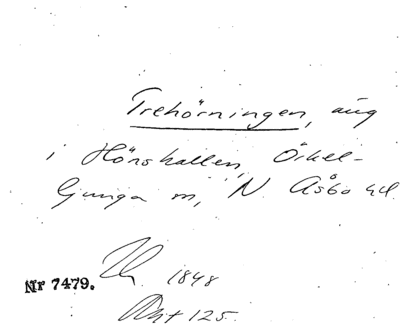 Trehörningen, äng
i Hönshallen, Örkel-
ljunga sn, N. Åsbo hd.
1848
Nr 7479.
Akt 125